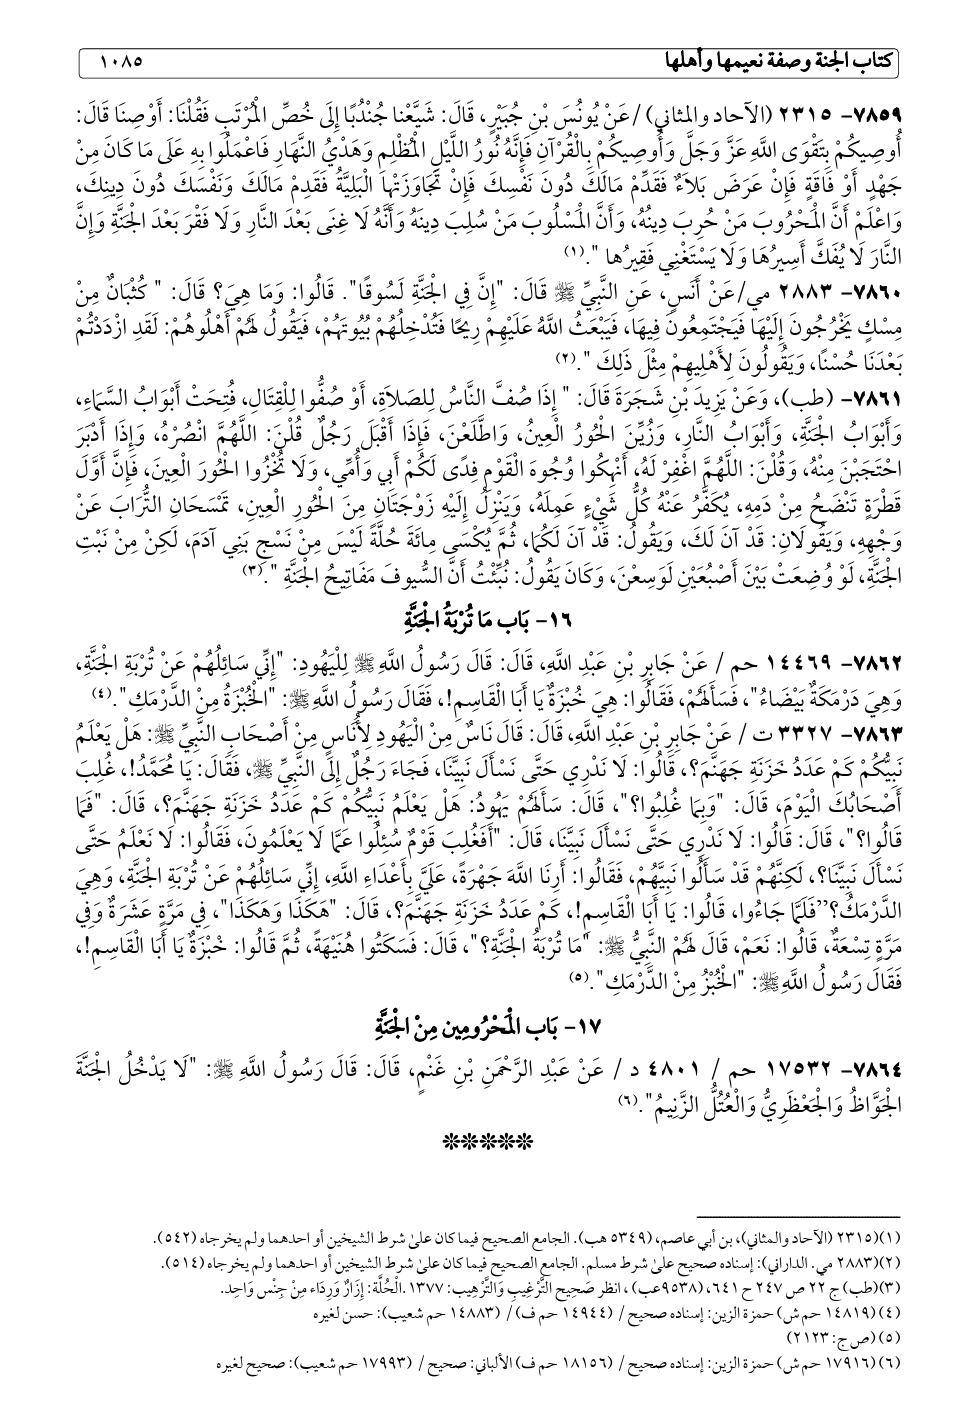 كتاب الجنة وصفة نعيمها وأهلها ١٠٨٥
٧٨٥٩- ٢٣١٥ (الآحاد والمثاني) /عَنْ يُونُسَ بْنِ جُبَيْرٍ، قَالَ: شَيَّعْنا جُنْدُبًا إِلَى خُصِّ الْمُرَتَّبِ فَقُلْنَا: أَوْصِنَا قَالَ:
أُوصِيكُمْ بِتَقْوَى اللَّهِ عَزَّ وَجَلَّ وَأُوصِيكُمْ بِالْقُرْآنِ فَإِنَّهُ نُورُ اللَّيْلِ الْمُظْلِمِ وَهَدْيُ النَّهَارِ فَاعْمَلُوا بِهِ عَلَى مَا كَانَ مِنْ
جَهْدٍ أَوْ فَاقَةٍ فَإِنْ عَرَضَ بَلَاءٌ فَقَدِّمْ مَالَكَ دُونَ نَفْسِكَ فَإِنْ تَجَاوَزَتْهَا الْبَلِيَّةُ فَقَدِمْ مَالَكَ وَنَفْسَكَ دُونَ دِينِكَ،
وَاعْلَمْ أَنَّ الْمَحْرُوبَ مَنْ حُرِبَ دِينُهُ، وَأَنَّ الْمَسْلُوبَ مَنْ سُلِبَ دِينَهُ وَأَنَّهُ لَا غِنَى بَعْدَ النَّارِ وَلَا فَقْرَ بَعْدَ الْجَنَّةِ وَإِنَّ
النَّارَ لَا يُفَكَّ أَسِيرُهَا وَلَا يَسْتَغْنِي فَقِيرُها ".(١)
٧٨٦٠- ٢٨٨٣ مي/عَنْ أَنَسٍ، عَنِ النَّبِيِّ ﷺ قَالَ: "إِنَّ فِي الْجَنَّةِ لَسُوقًا". قَالُوا: وَمَا هِيَ؟ قَالَ: " كُثْبَانٌ مِنْ
مِسْكٍ يَخْرُجُونَ إِلَيْهَا فَيَجْتَمِعُونَ فِيهَا، فَيَبْعَثُ اللَّهُ عَلَيْهِمْ رِيحًا فَتُدْخِلُهُمْ بُيُوتَهُمْ، فَيَقُولُ لَهُمْ أَهْلُوهُمْ: لَقَدِ ازْدَدْتُمْ
بَعْدَنَا حُسْنًا، وَيَقُولُونَ لِأَهْلِيهِمْ مِثْلَ ذَلِكَ ".(٢)
٧٨٦١- (طب)، وَعَنْ يَزِيدَ بْنِ شَجَرَةَ قَالَ: " إِذَا صُفَّ النَّاسُ لِلصَلاَةِ، أَوْ صُفُّوا لِلْقِتَالِ، فُتِحَتْ أَبْوَابُ السَّمَاءِ،
وَأَبْوَابُ الْجَنَّةِ، وَأَبْوَابُ النَّارِ، وَزُيِّنَ الْحُورُ الْعِينُ، وَاطَّلَعْنَ، فَإِذَا أَقْبَلَ رَجُلٌ قُلْنَ: اللَّهُمَّ انْصُرْهُ، وَإِذَا أَدْبَرَ
احْتَجَبْنَ مِنْهُ، وَقُلْنَ: اللَّهُمَّ اغْفِرْ لَهُ، أَنْهِكُوا وُجُوهَ الْقَوْمِ فِدًى لَكُمْ أَبِي وَأُمِّي، وَلَا تُخْزُوا الْحُورَ الْعِينَ، فَإِنَّ أَوَّلَ
قَطْرَةٍ تَنْضَحُ مِنْ دَمِهِ، يُكَفَّرُ عَنْهُ كُلُّ شَيْءٍ عَمِلَهُ، وَيَنْزِلُ إِلَيْهِ زَوْجَتَانِ مِنَ الْحُورِ الْعِينِ، تَمْسَحَانِ التُّرَابَ عَنْ
وَجْهِهِ، وَيَقُولَانِ: قَدْ آنَ لَكَ، وَيَقُولُ: قَدْ آنَ لَكُمَا، ثُمَّ يُكْسَى مِائَةَ حُلَّةً لَيْسَ مِنْ نَسْجِ بَنِي آدَمَ، لَكِنْ مِنْ نَبْتِ
الْجَنَّةِ، لَوْ وُضِعَتْ بَيْنَ أَصْبُعَيْنِ لَوَسِعْنَ، وَكَانَ يَقُولُ: نُبِّئْتُ أَنَّ السُّيوفَ مَفَاتِيحُ الْجَنَّةِ ".(٣)
١٦- بَاب مَا تُرْبَةُ الْجَنَّةِ
٧٨٦٢- ١٤٤٦٩ حم / عَنْ جَابِرِ بْنِ عَبْدِ اللَّهِ، قَالَ: قَالَ رَسُولُ اللَّهِ ﷺ لِلْيَهُودِ: "إِنِّي سَائِلُهُمْ عَنْ تُرْبَةِ الْجَنَّةِ،
وَهِيَ دَرْمَكَةٌ بَيْضَاءُ"، فَسَأَلَهُمْ، فَقَالُوا: هِيَ خُبْزَةٌ يَا أَبَا الْقَاسِمِ!، فَقَالَ رَسُولُ اللَّهِ ﷺ: "الْخُبْزَةُ مِنْ الدَّرْمَكِ".(٤)
٧٨٦٣- ٣٣٢٧ ت / عَنْ جَابِرِ بْنِ عَبْدِ اللَّهِ، قَالَ: قَالَ نَاسٌ مِنْ الْيَهُودِ لِأُنَاسٍ مِنْ أَصْحَابِ النَّبِيِّ ﷺ: هَلْ يَعْلَمُ
نَبِيُّكُمْ كَمْ عَدَدُ خَزَنَةِ جَهَنَّمَ؟، قَالُوا: لَا نَدْرِي حَتَّى نَسْأَلَ نَبِيَّنَا، فَجَاءَ رَجُلٌ إِلَى النَّبِيِّ ﷺ، فَقَالَ: يَا مُحَمَّدُ!، غُلِبَ
أَصْحَابُكَ الْيَوْمَ، قَالَ: "وَبِمَا غُلِبُوا؟"، قَالَ: سَأَلَهُمْ يَهُودُ: هَلْ يَعْلَمُ نَبِيُّكُمْ كَمْ عَدَدُ خَزَنَةِ جَهَنَّمَ؟، قَالَ: "فَمَا
قَالُوا؟"، قَالَ: قَالُوا: لَا نَدْرِي حَتَّى نَسْأَلَ نَبِيَّنَا، قَالَ: "أَفَغُلِبَ قَوْمٌ سُئِلُوا عَمَّا لَا يَعْلَمُونَ، فَقَالُوا: لَا نَعْلَمُ حَتَّى
نَسْأَلَ نَبِيَّنَا؟، لَكِنَّهُمْ قَدْ سَأَلُوا نَبِيَّهُمْ، فَقَالُوا: أَرِنَا اللَّهَ جَهْرَةً، عَلَيَّ بِأَعْدَاءِ اللَّهِ، إِنِّي سَائِلُهُمْ عَنْ تُرْبَةِ الْجَنَّةِ، وَهِيَ
الدَّرْمَكُ؟"فَلَمَّا جَاءُوا، قَالُوا: يَا أَبَا الْقَاسِمِ!، كَمْ عَدَدُ خَزَنَةِ جَهَنَّمَ؟، قَالَ: "هَكَذَا وَهَكَذَا"، فِي مَرَّةٍ عَشَرَةٌ وَفِي
مَرَّةٍ تِسْعَةٌ، قَالُوا: نَعَمْ، قَالَ لَهُمْ النَّبِيُّ ﷺ: "مَا تُرْبَةُ الْجَنَّةِ؟"، قَالَ: فَسَكَتُوا هُنَيْهَةً، ثُمَّ قَالُوا: خُبْزَةٌ يَا أَبَا الْقَاسِمِ!،
فَقَالَ رَسُولُ اللَّهِ ﷺ: "الْخُبْزُ مِنْ الدَّرْمَكِ".(٥)
١٧- بَاب الْمَحْرُومِين مِنْ الْجَنَّةِ
٧٨٦٤- ١٧٥٣٢ حم / ٤٨٠١ د / عَنْ عَبْدِ الرَّحْمَنِ بْنِ غَنْمٍ، قَالَ: قَالَ رَسُولُ اللَّهِ ﷺ: "لَا يَدْخُلُ الْجَنَّةَ
الْجَوَّاظُ وَالْجَعْظَرِيُّ وَالْعُتُلُّ الزَّنِيمُ".(٦)
*****
(١)(٢٣١٥ (الآحاد والمثاني)، بن أبي عاصم، (٥٣٤٩ هب). الجامع الصحيح فيما كان علىٰ شرط الشيخين أو احدهما ولم يخرجاه (٥٤٢).
(٢)(٢٨٨٣ مي. الداراني): إسناده صحيح علىٰ شرط مسلم. الجامع الصحيح فيما كان علىٰ شرط الشيخين أو احدهما ولم يخرجاه (٥١٤).
(٣)(طب) ج ٢٢ ص ٢٤٧ ح ٦٤١، (٩٥٣٨عب) ، انظر صَحِيح التَّرْغِيبِ وَالتَّرْهِيب: ١٣٧٧ .الْحُلَّة: إِزَارٌ وَرِدَاء مِنْ جِنْس وَاحِد.
(٤)(١٤٨١٩ حم ش) حمزة الزين: إسناده صحيح / (١٤٩٤٤ حم ف)/ (١٤٨٨٣ حم شعيب): حسن لغيره
(٥)(ص ج: ٢١٢٣)
(٦)(١٧٩١٦ حم ش) حمزة الزين: إسناده صحيح / (١٨١٥٦ حم ف) الألباني: صحيح / (١٧٩٩٣ حم شعيب): صحيح لغيره